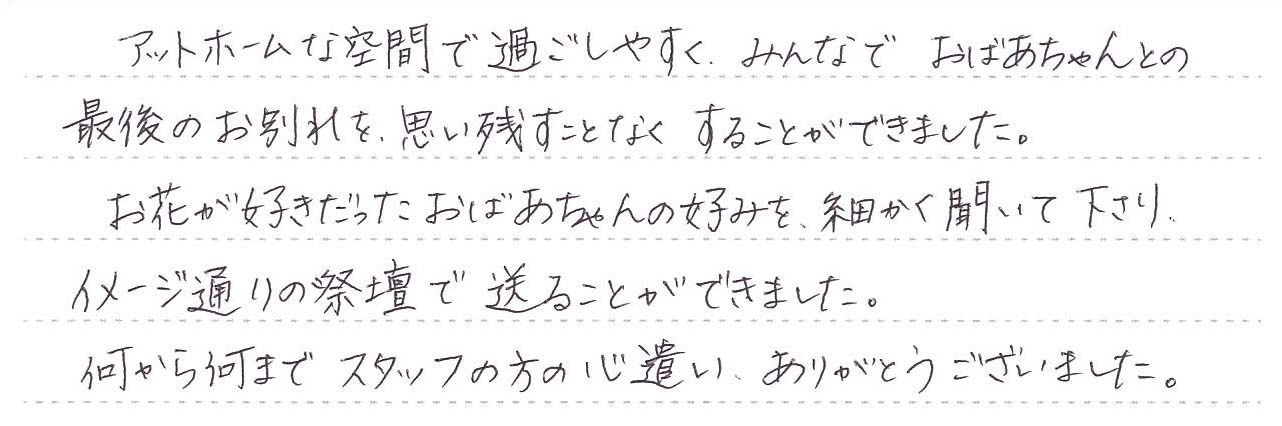 アットホームな空間で過ごしやすく、みんなで おばあちゃんとの
最後のお別れを、思い残すことなく することができました。
お花が好きだったおばあちゃんの好みを、細かく聞いて下さり、
イメージ通りの祭壇で 送ることができました。
何から何まで スタッフの方の心遣い、ありがとうございました。